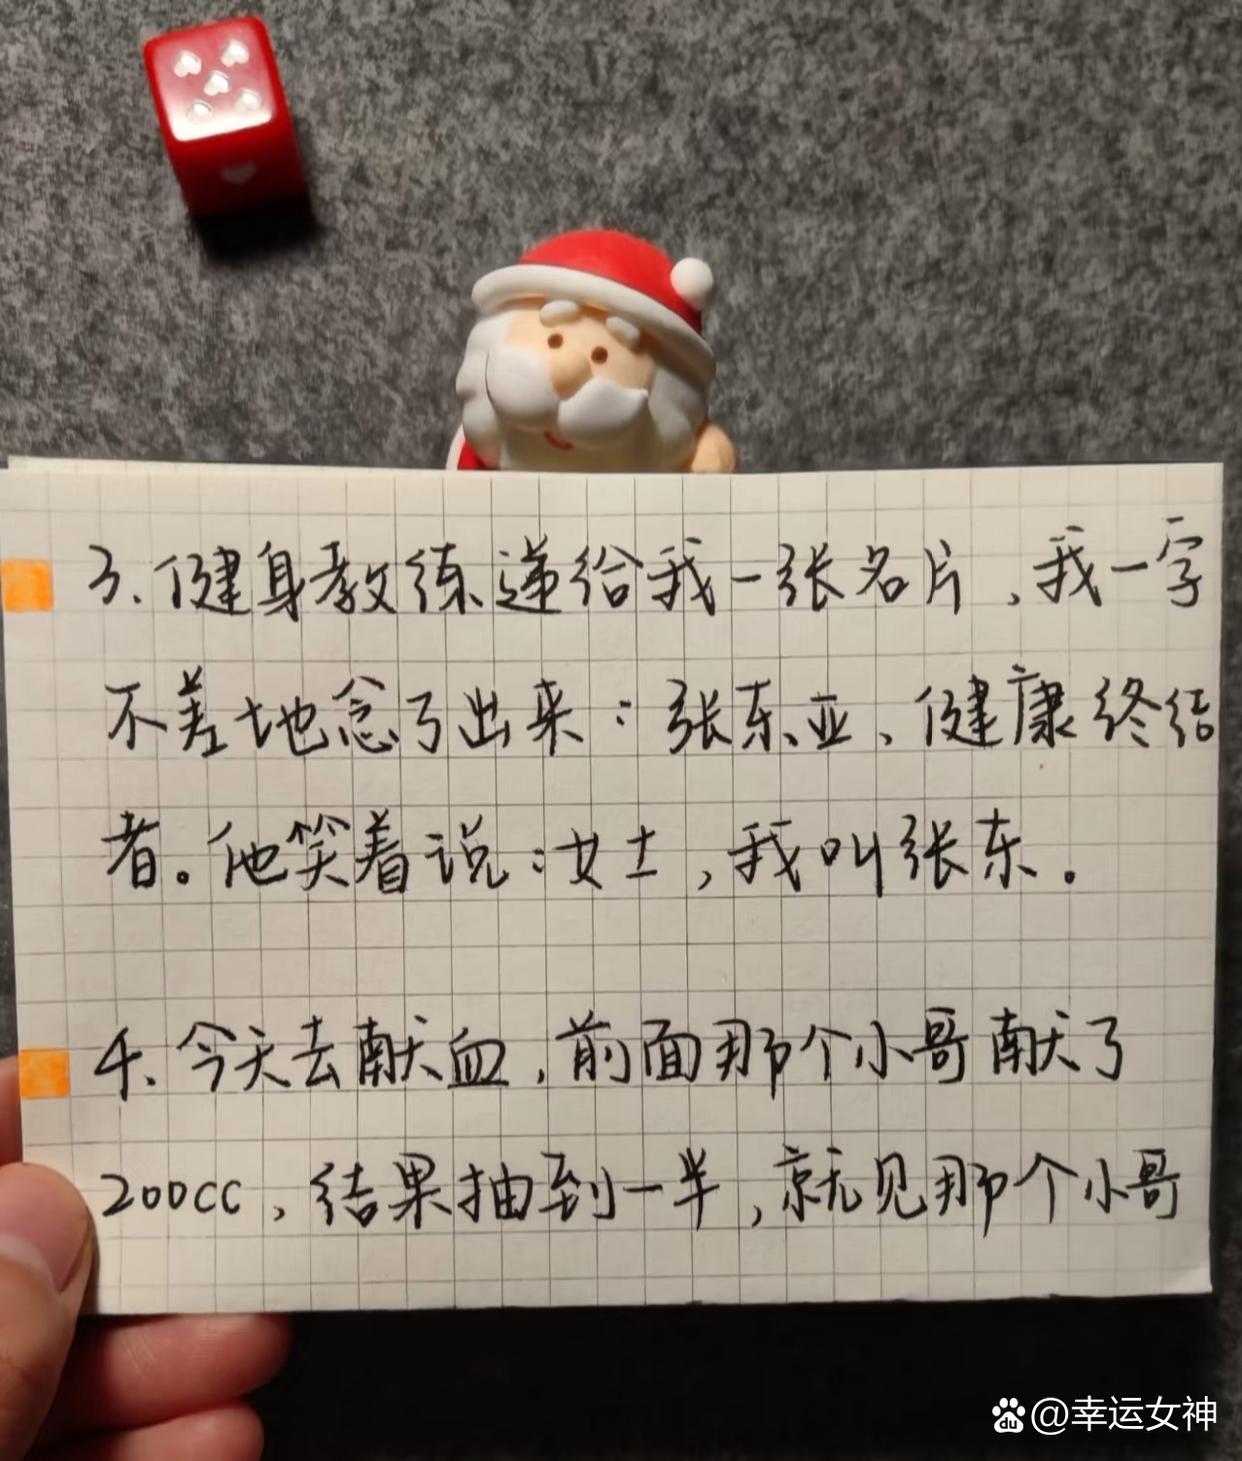 3.健身教练递给我一张名片,我一字
不差地念了出来:张东亚、健康终结
者。他笑着说:女士,我叫张东。
4.今天去献血,前面那个小哥献了
200CC,结果抽到一半,就见那个小哥
du @幸运女神